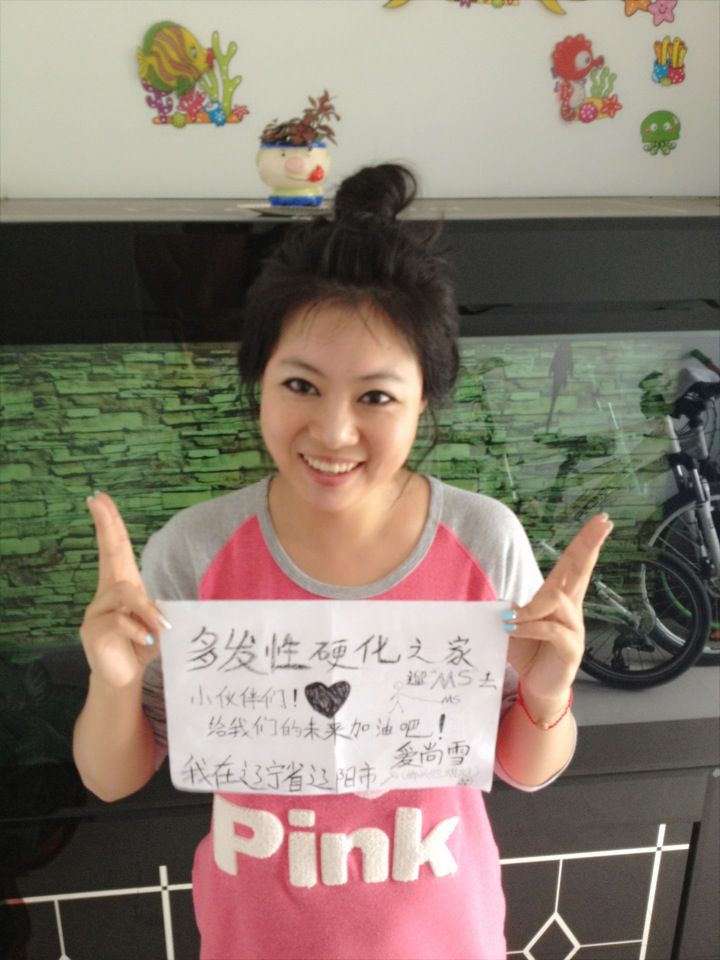 多发性硬化之家
遛MS去
小伙伴们！
MS
给我们的未来加油吧！
爱尚雪
我在辽宁省辽阳市
Pink